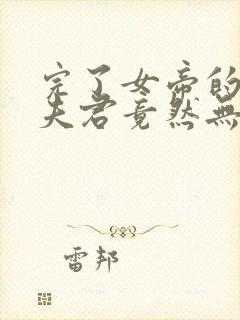 完了女帝的
夫君竟然無
雷邦